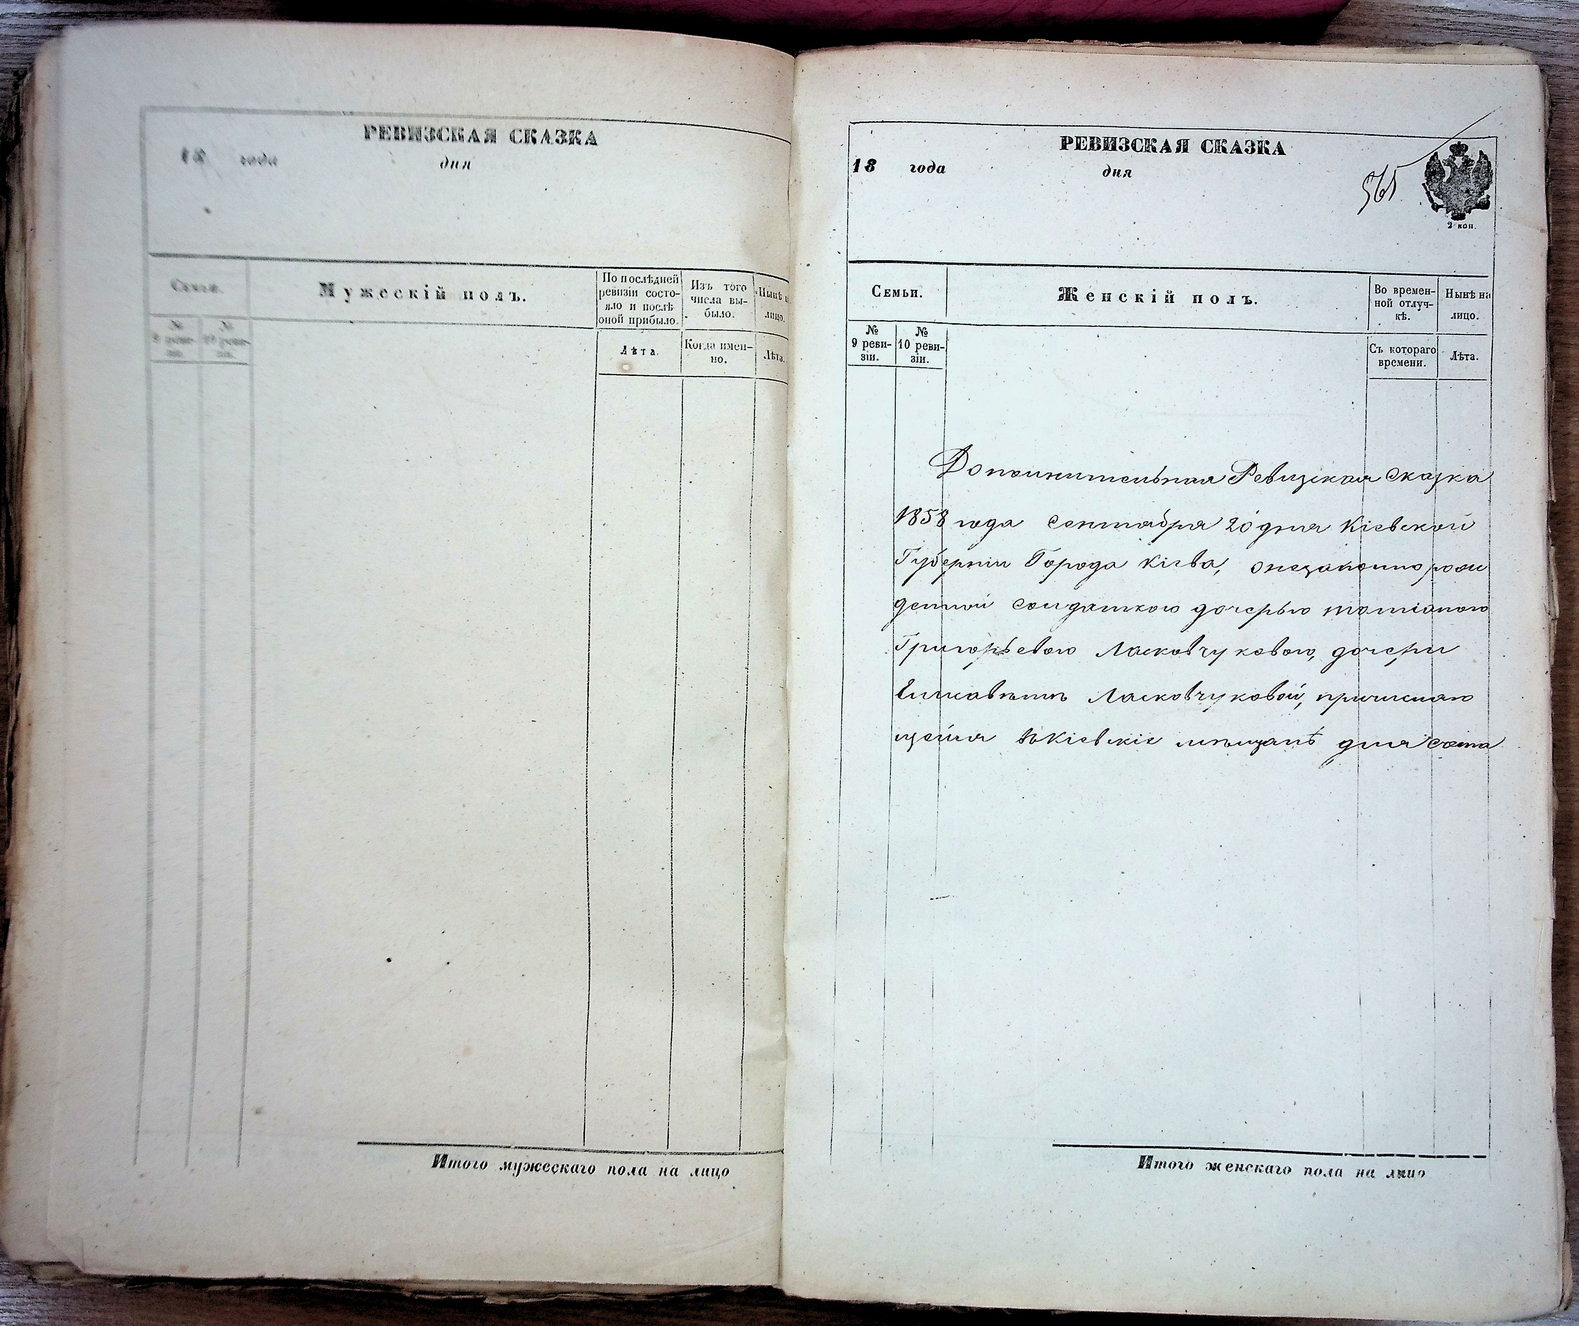 РЕВИЗСКАЯ СКАЗКА
18 года дня
Семьи.
Мужескій полъ.
По послѣдней ревизіи состояло и послѣ оной прибыло.
Изъ того числа выбыло.
Нынѣ на лицо.
№ 9 ревизіи.
№ 10 ревизіи.
Лѣта.
Когда именно.
Лѣта.
Итого мужескаго пола на лицо
РЕВИЗСКАЯ СКАЗКА
18 года дня
561
2 коп.
Семьи.
Женскій полъ.
Во временной отлучкѣ.
Нынѣ на лицо.
№ 9 ревизіи.
№ 10 ревизіи.
Съ котораго времени.
Лѣта.
Дополнительная Ревизская сказка
1858 года сентября 20 дня Кіевской
Губерніи Города Кіева, онезаконнорож
денной солдаткою дочерью татіаною
Григорьевою Ласковчуковою, дочери
Елисаветѣ Ласковчуковой, причисляю
щейся въ Кіевскіе мѣщане для счета
Итого женскаго пола на лицо